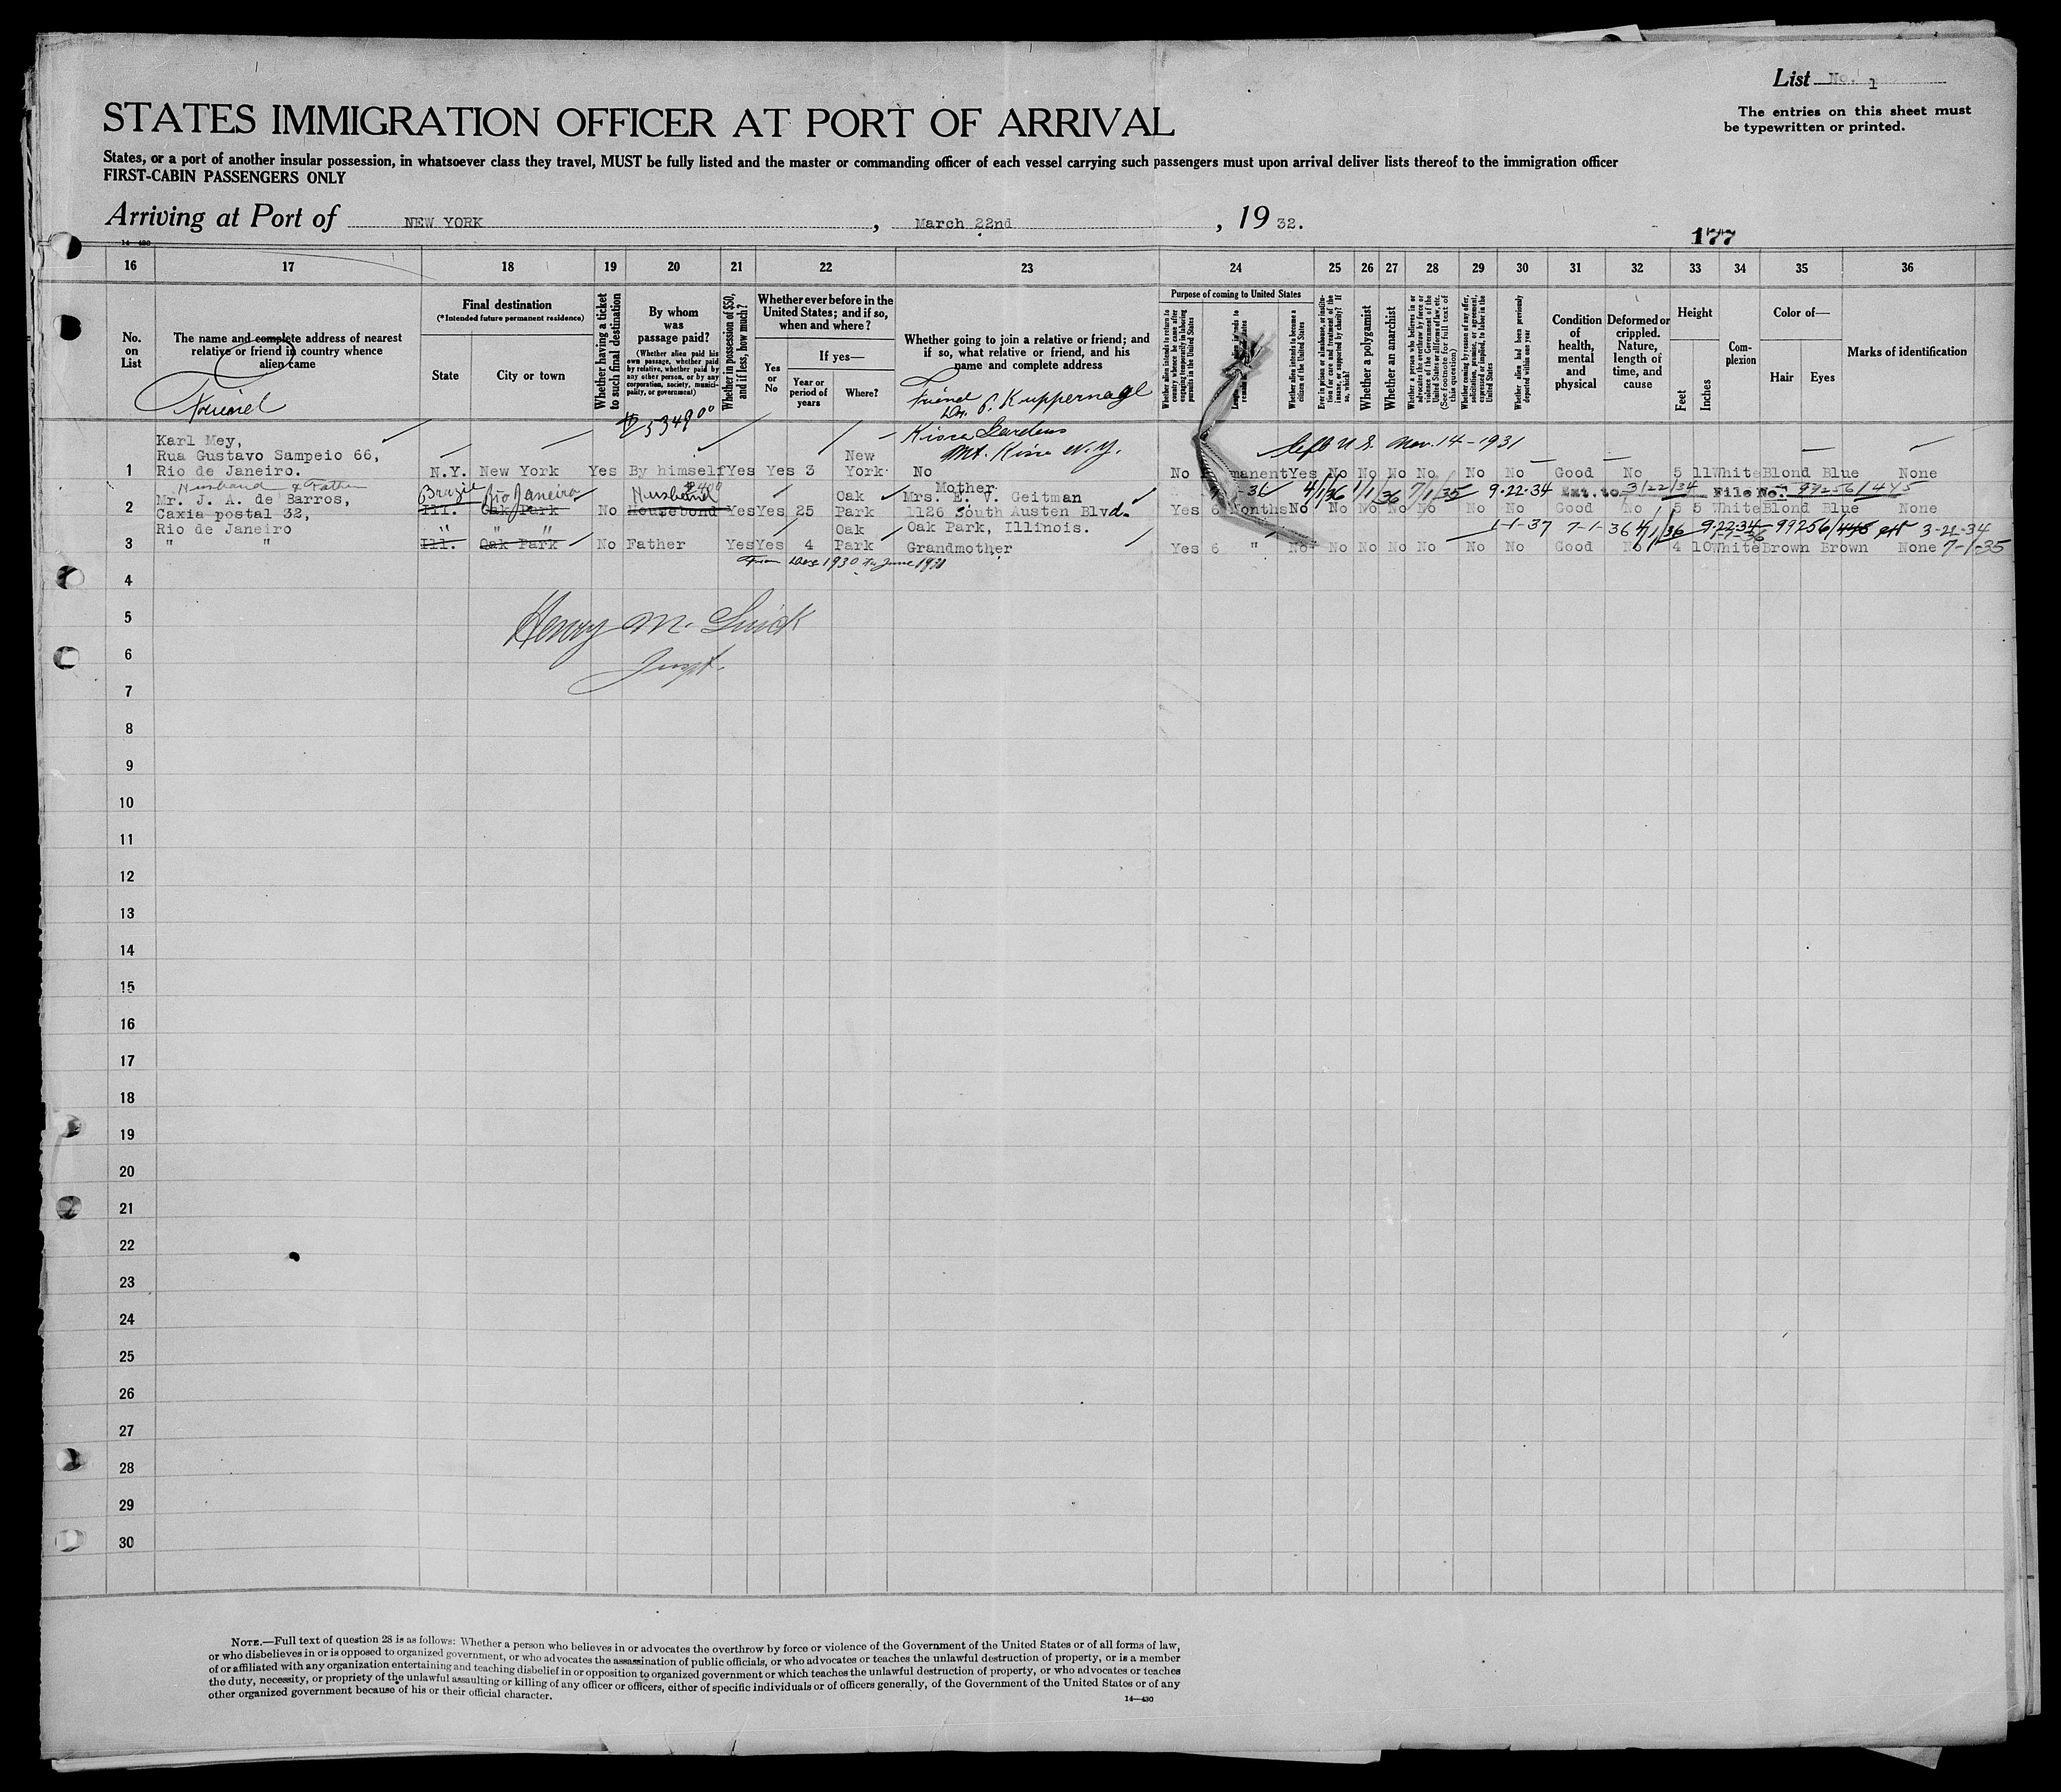 List No. 1
The entries on this sheet must
be typewritten or printed.
STATES IMMIGRATION OFFICER AT PORT OF ARRIVAL
States, or a port of another insular possession, in whatsoever class they travel, MUST be fully listed and the master or commanding officer of each vessel carrying such passengers must upon arrival deliver lists thereof to the immigration officer
FIRST-CABIN PASSENGERS ONLY
Arriving at Port of NEW YORK, March 22nd, 19 32.
14—430
177
16 17 18 19 20 21 22 23 24 25 26 27 28 29 30 31 32 33 34 35 36
No. on List
The name and complete address of nearest
relative or friend in country whence
alien came
Friend
Final destination
(*Intended future permanent residence)
State
City or town
Whether having a ticket
to such final destination
By whom
was
passage paid?
(Whether alien paid his
own passage, whether paid
by relative, whether paid by
any other person, or by any
corporation, society, munici-
pality, or government)
Whether in possession of $50,
and if less, how much?
Whether ever before in the
United States; and if so,
when and where?
Yes or No
If yes—
Year or
period of
years
Where?
Whether going to join a relative or friend; and
if so, what relative or friend, and his
name and complete address
Friend
Dr. P. Kuppernagl
Kisca Gardens
Mt. Kisco N.Y.
Purpose of coming to United States
Whether alien intends to return to
country whence he came after
engaging temporarily in laboring
pursuits in the United States
Whether alien intends to become a
citizen of the United States
Ever in prison or almshouse, or institu-
tion for care and treatment of the
insane, or supported by charity? If
so, which?
Whether a polygamist
Whether an anarchist
Whether a person who believes in or
advocates the overthrow by force or
violence of the Government of the
United States or all forms of law, etc.
(See footnote for full text of
this question)
Whether coming by reason of any offer,
solicitation, promise, or agreement,
expressed or implied, to labor in the
United States
Whether alien had been previously
deported within one year
Condition
of
health,
mental
and
physical
Deformed or
crippled.
Nature,
length of
time, and
cause
Height
Feet
Inches
Com-
plexion
Color of—
Hair
Eyes
Marks of identification
Karl Mey,
Rua Gustavo Sampeio 66,
left U.S. Nov. 14-1931
1 Rio de Janeiro. N.Y. New York Yes By himself Yes Yes 3 New York No No manent Yes No No No No No No Good No 5 11 White Blond Blue None
Husband & Father
Mr. J. A. de Barros,
Brazil Rio Janeiro Husband $400
Mother
Mrs. E. V. Geitman
-36 4/1/36 1/1/36 7/1/35 9-22-34 Ext. to 3/22/34 File No. 99256/445
2 Caxia postal 32, Ill. Oak Park No Housebond Yes Yes 25 Oak Park 1126 South Austen Blvd. Yes 6 Months No No No No No No No Good No 5 5 White Blond Blue None
Rio de Janeiro " " " Oak Park, Illinois.
1-1-37 7-1-36 4/1/36 9-22-34 1-1-36 99256/445 3-21-34
3 " " Ill. Oak Park No Father Yes Yes 4 Oak Park Grandmother Yes 6 " No No No No No No No Good No 4 10 White Brown Brown None 7-1-35
From Dec 1930 to June 1931
4
5
Henry M.
6
Inspt.
7
8
9
10
11
12
13
14
15
16
17
18
19
20
21
22
23
24
25
26
27
28
29
30
NOTE.—Full text of question 28 is as follows: Whether a person who believes in or advocates the overthrow by force or violence of the Government of the United States or of all forms of law,
or who disbelieves in or is opposed to organized government, or who advocates the assassination of public officials, or who advocates or teaches the unlawful destruction of property, or is a member
of or affiliated with any organization entertaining and teaching disbelief in or opposition to organized government or which teaches the unlawful destruction of property, or who advocates or teaches
the duty, necessity, or propriety of the unlawful assaulting or killing of any officer or officers, either of specific individuals or of officers generally, of the Government of the United States or of any
other organized government because of his or their official character.
14—430